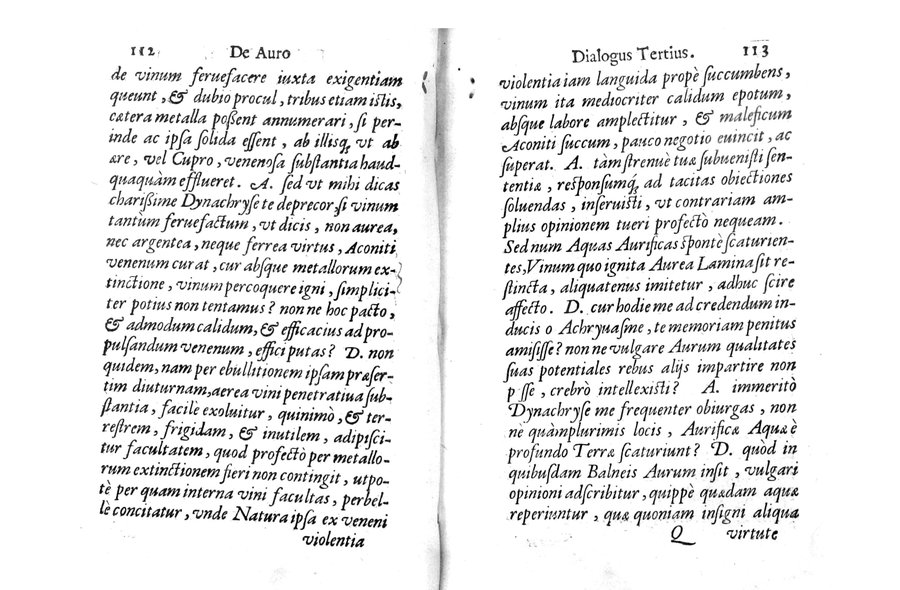 112 De Auro
de vinum feruefacere iuxta exigentiam
queunt, & dubio procul, tribus etiam istis,
cætera metalla possent annumerari, si per-
inde ac ipsa solida essent, ab illisq; vt ab
ære, vel Cupro, venenosa substantia haud-
quaquàm efflueret. A. sed vt mihi dicas
charissime Dynachryse te deprecor, si vinum
tantùm feruefactum, vt dicis, non aurea,
nec argentea, neque ferrea virtus, Aconiti
venenum curat, cur absque metallorum ex-
tinctione, vinum percoquere igni, simplici-
ter potius non tentamus? non ne hoc pacto,
& admodum calidum, & efficacius ad pro-
pulsandum venenum, effici putas? D. non
quidem, nam per ebullitionem ipsam præser-
tim diuturnam, aerea vini penetratiua sub-
stantia, facilè exoluitur, quinimò, & ter-
restrem, frigidam, & inutilem, adipisci-
tur facultatem, quod profectò per metallo-
rum extinctionem fieri non contingit, utpo-
tè per quam interna vini facultas, perbel-
lè concitatur, vnde Natura ipsa ex veneni
violentia
Dialogus Tertius. 113
violentia iam languida propè succumbens,
vinum ita mediocriter calidum epotum,
absque labore amplectitur, & maleficum
Aconiti succum, pauco negotio euincit, ac
superat. A. tàm strenuè tuæ subuenisti sen-
tentiæ, responsumq; ad tacitas obiectiones
soluendas, inseruisti, vt contrariam am-
plius opinionem tueri profectò nequeam.
Sed num Aquas Aurificas spontè scaturien-
tes, Vinum quo ignita Aurea Lamina sit re-
stincta, aliquatenus imitetur, adhuc scire
affecto. D. cur hodie me ad credendum in-
ducis o Achryuasme, te memoriam penitus
amisisse? non ne vulgare Aurum qualitates
suas potentiales rebus alijs impartire non
p sse, crebrò intellexisti? A. immeritò
Dynachryse me frequenter obiurgas, non
ne quàmplurimis locis, Aurificæ Aquæ è
profundo Terræ scaturiunt? D. quòd in
quibusdam Balneis Aurum insit, vulgari
opinioni adscribitur, quippè quædam aquæ
reperiuntur, quæ quoniam insigni aliqua
Q virtute